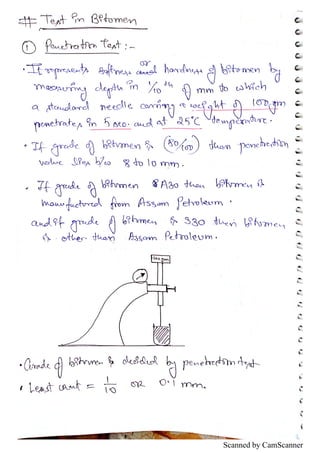 # Test in Bitumen
① Penetration Test :-
• It represents softness or and hardness of bitumen by
measuring depth in 1/10 th of mm to which
a standard needle carring a weight of 100 gm
penetrates in 5 sec. and at 25°C temperature.
• If grade of bitumen is (80/100) than penetration
value lies b/w 8 to 10 mm.
• If grade of bitumen is A30 than bitumen is
manufactured from Assam Petroleum.
and if grade of bitumen is S30 then bitumen
is other than Assam Petroleum.
100 gm
• Grade of bitumen is decided by penetration test
• Least count = 1/10 OR 0.1 mm.
Scanned by CamScanner